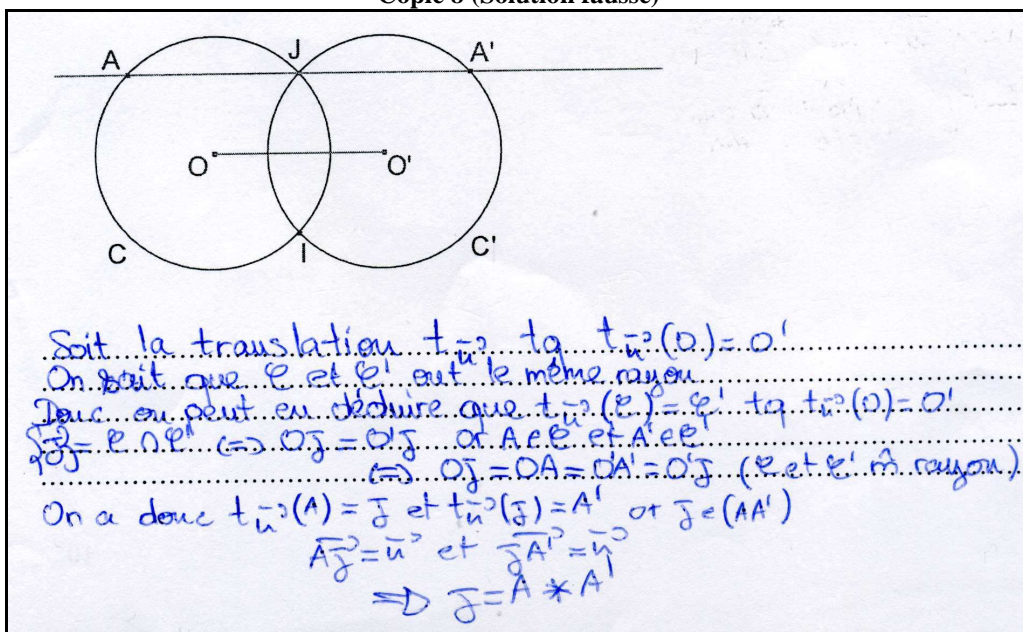 Copie 8 (Solution fausse)
A J A'
O O'
C I C'
Soit la translation t_u⃗ tq t_u⃗(O) = O'
On sait que C et C' ont le même rayon
Donc on peut en déduire que t_u⃗(C) = C' tq t_u⃗(O) = O'
= C ∩ C' <=> OJ = O'J or A ∈ C et A' ∈ C'
<=> OJ = OA = O'A' = O'J (C et C' m̂ rayon)
On a donc t_u⃗(A) = J et t_u⃗(J) = A' or J ∈ (AA')
AJ⃗ = u⃗ et JA'⃗ = u⃗
=> J = A * A'